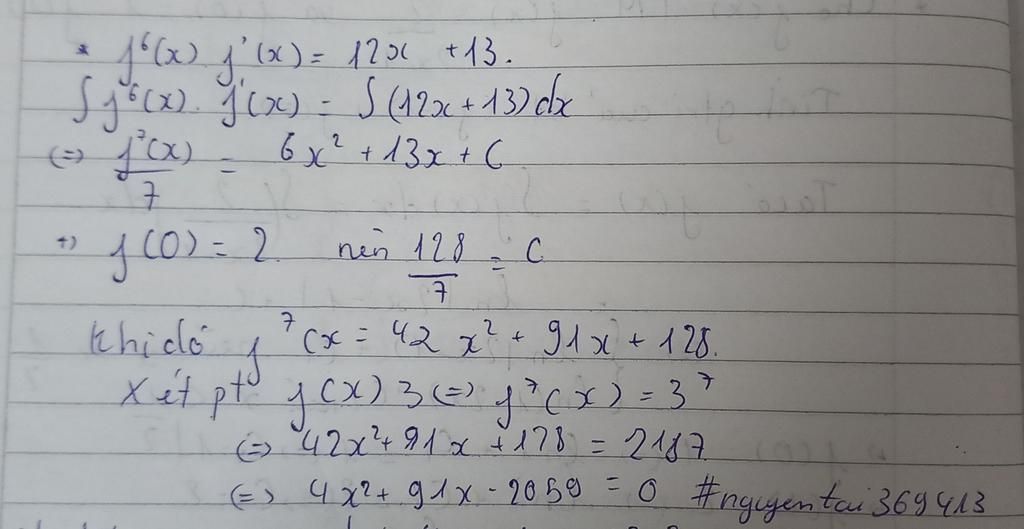 * f⁶(x) f'(x) = 12x + 13.
∫ f⁶(x). f'(x) = ∫ (12x + 13) dx
(=) f⁷(x)/7 = 6x² + 13x + C
+) f(0) = 2 nên 128/7 = C
khi đó f⁷(x = 42x² + 91x + 128.
Xét pt f(x) 3 (=) f⁷(x) = 3⁷
(=) 42x² + 91x + 128 = 2187
(=) 4x² + 91x - 2059 = 0 #nguyentai369413